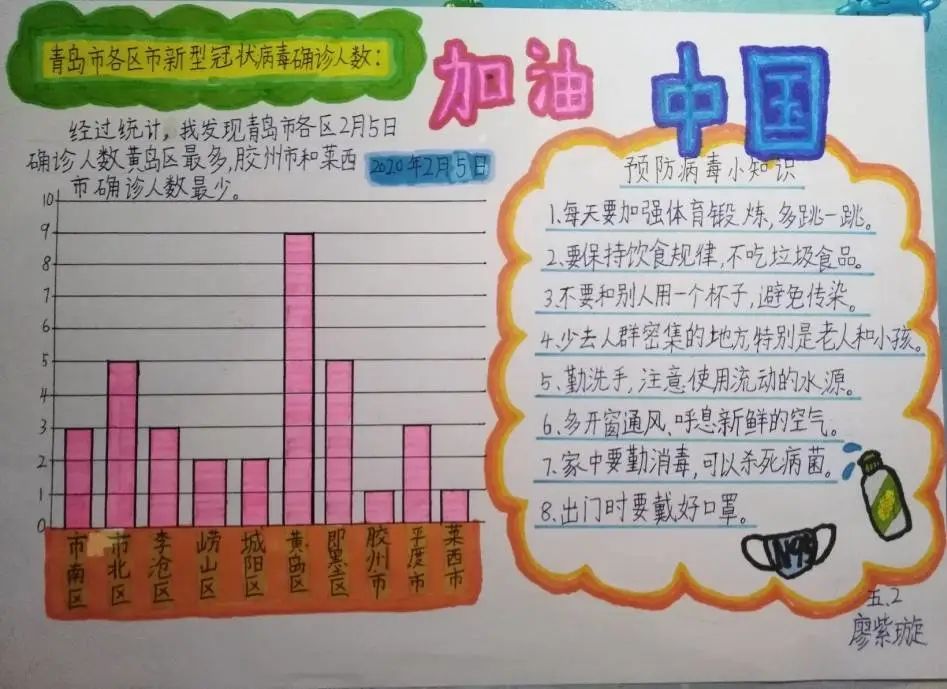 青岛市各区市新型冠状病毒确诊人数：
加油 中国
经过统计，我发现青岛市各区2月5日
确诊人数黄岛区最多，胶州市和莱西
市确诊人数最少。
2020年2月5日
10
9
8
7
6
5
4
3
2
1
0
市南区
市北区
李沧区
崂山区
城阳区
黄岛区
即墨区
胶州市
平度市
莱西市
预防病毒小知识
1.每天要加强体育锻炼，多跳一跳。
2.要保持饮食规律，不吃垃圾食品。
3.不要和别人用一个杯子，避免传染。
4.少去人群密集的地方，特别是老人和小孩。
5、勤洗手，注意使用流动的水源。
6、多开窗通风、呼息新鲜的空气。
7、家中要勤消毒，可以杀死病菌。
8.出门时要戴好口罩。
N95
五.2
廖紫璇